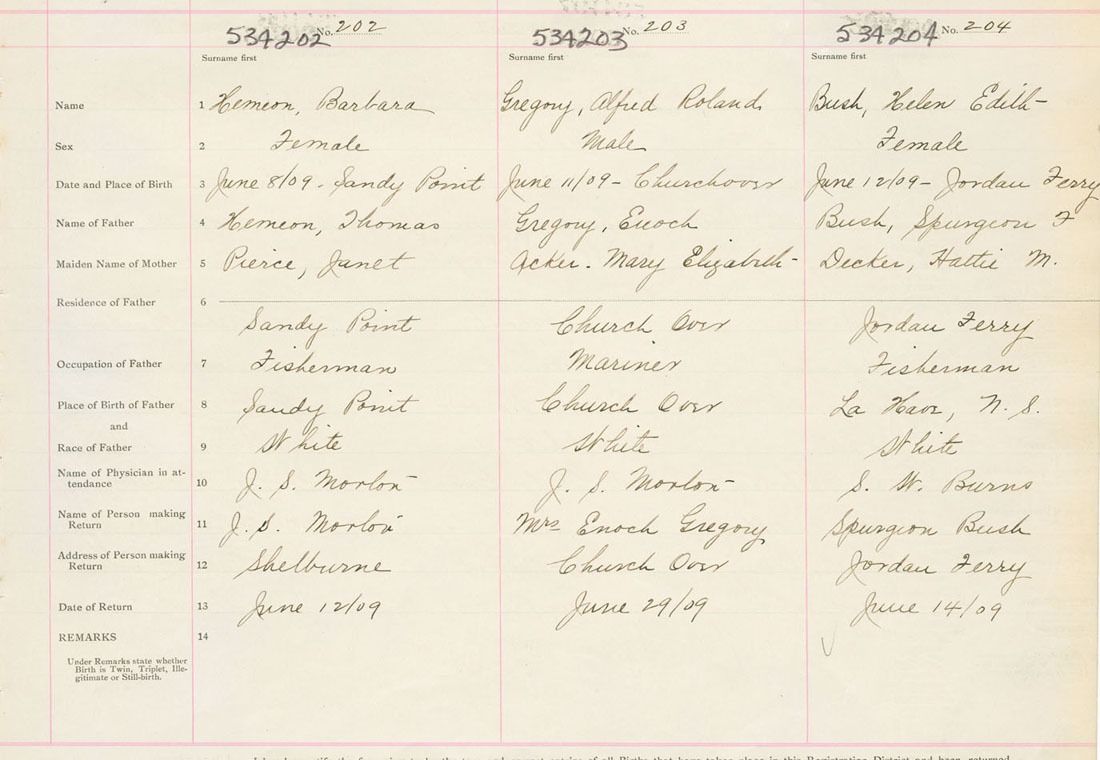 534202 No. 202 534203 No. 203 534204 No. 204
Surname first Surname first Surname first
Name 1 Hemeon, Barbara Gregory, Alfred Roland Bush, Helen Edith
Sex 2 Female Male Female
Date and Place of Birth 3 June 8/09 - Sandy Point June 11/09 - Churchover June 12/09 - Jordan Ferry
Name of Father 4 Hemeon, Thomas Gregory, Enoch Bush, Spurgeon F
Maiden Name of Mother 5 Pierce, Janet Acker. Mary Elizabeth - Decker, Hattie M.
Residence of Father 6
Sandy Point Church Over Jordan Ferry
Occupation of Father 7 Fisherman Mariner Fisherman
Place of Birth of Father 8 Sandy Point Church Over La Have, N. S.
and
Race of Father 9 White White White
Name of Physician in at-
tendance 10 J. S. Morton J. S. Morton S. W. Burns
Name of Person making
Return 11 J. S. Morton Mrs Enoch Gregory Spurgeon Bush
Address of Person making
Return 12 Shelburne Church Over Jordan Ferry
Date of Return 13 June 12/09 June 29/09 June 14/09
REMARKS 14
Under Remarks state whether
Birth is Twin, Triplet, Ille-
gitimate or Still-birth.